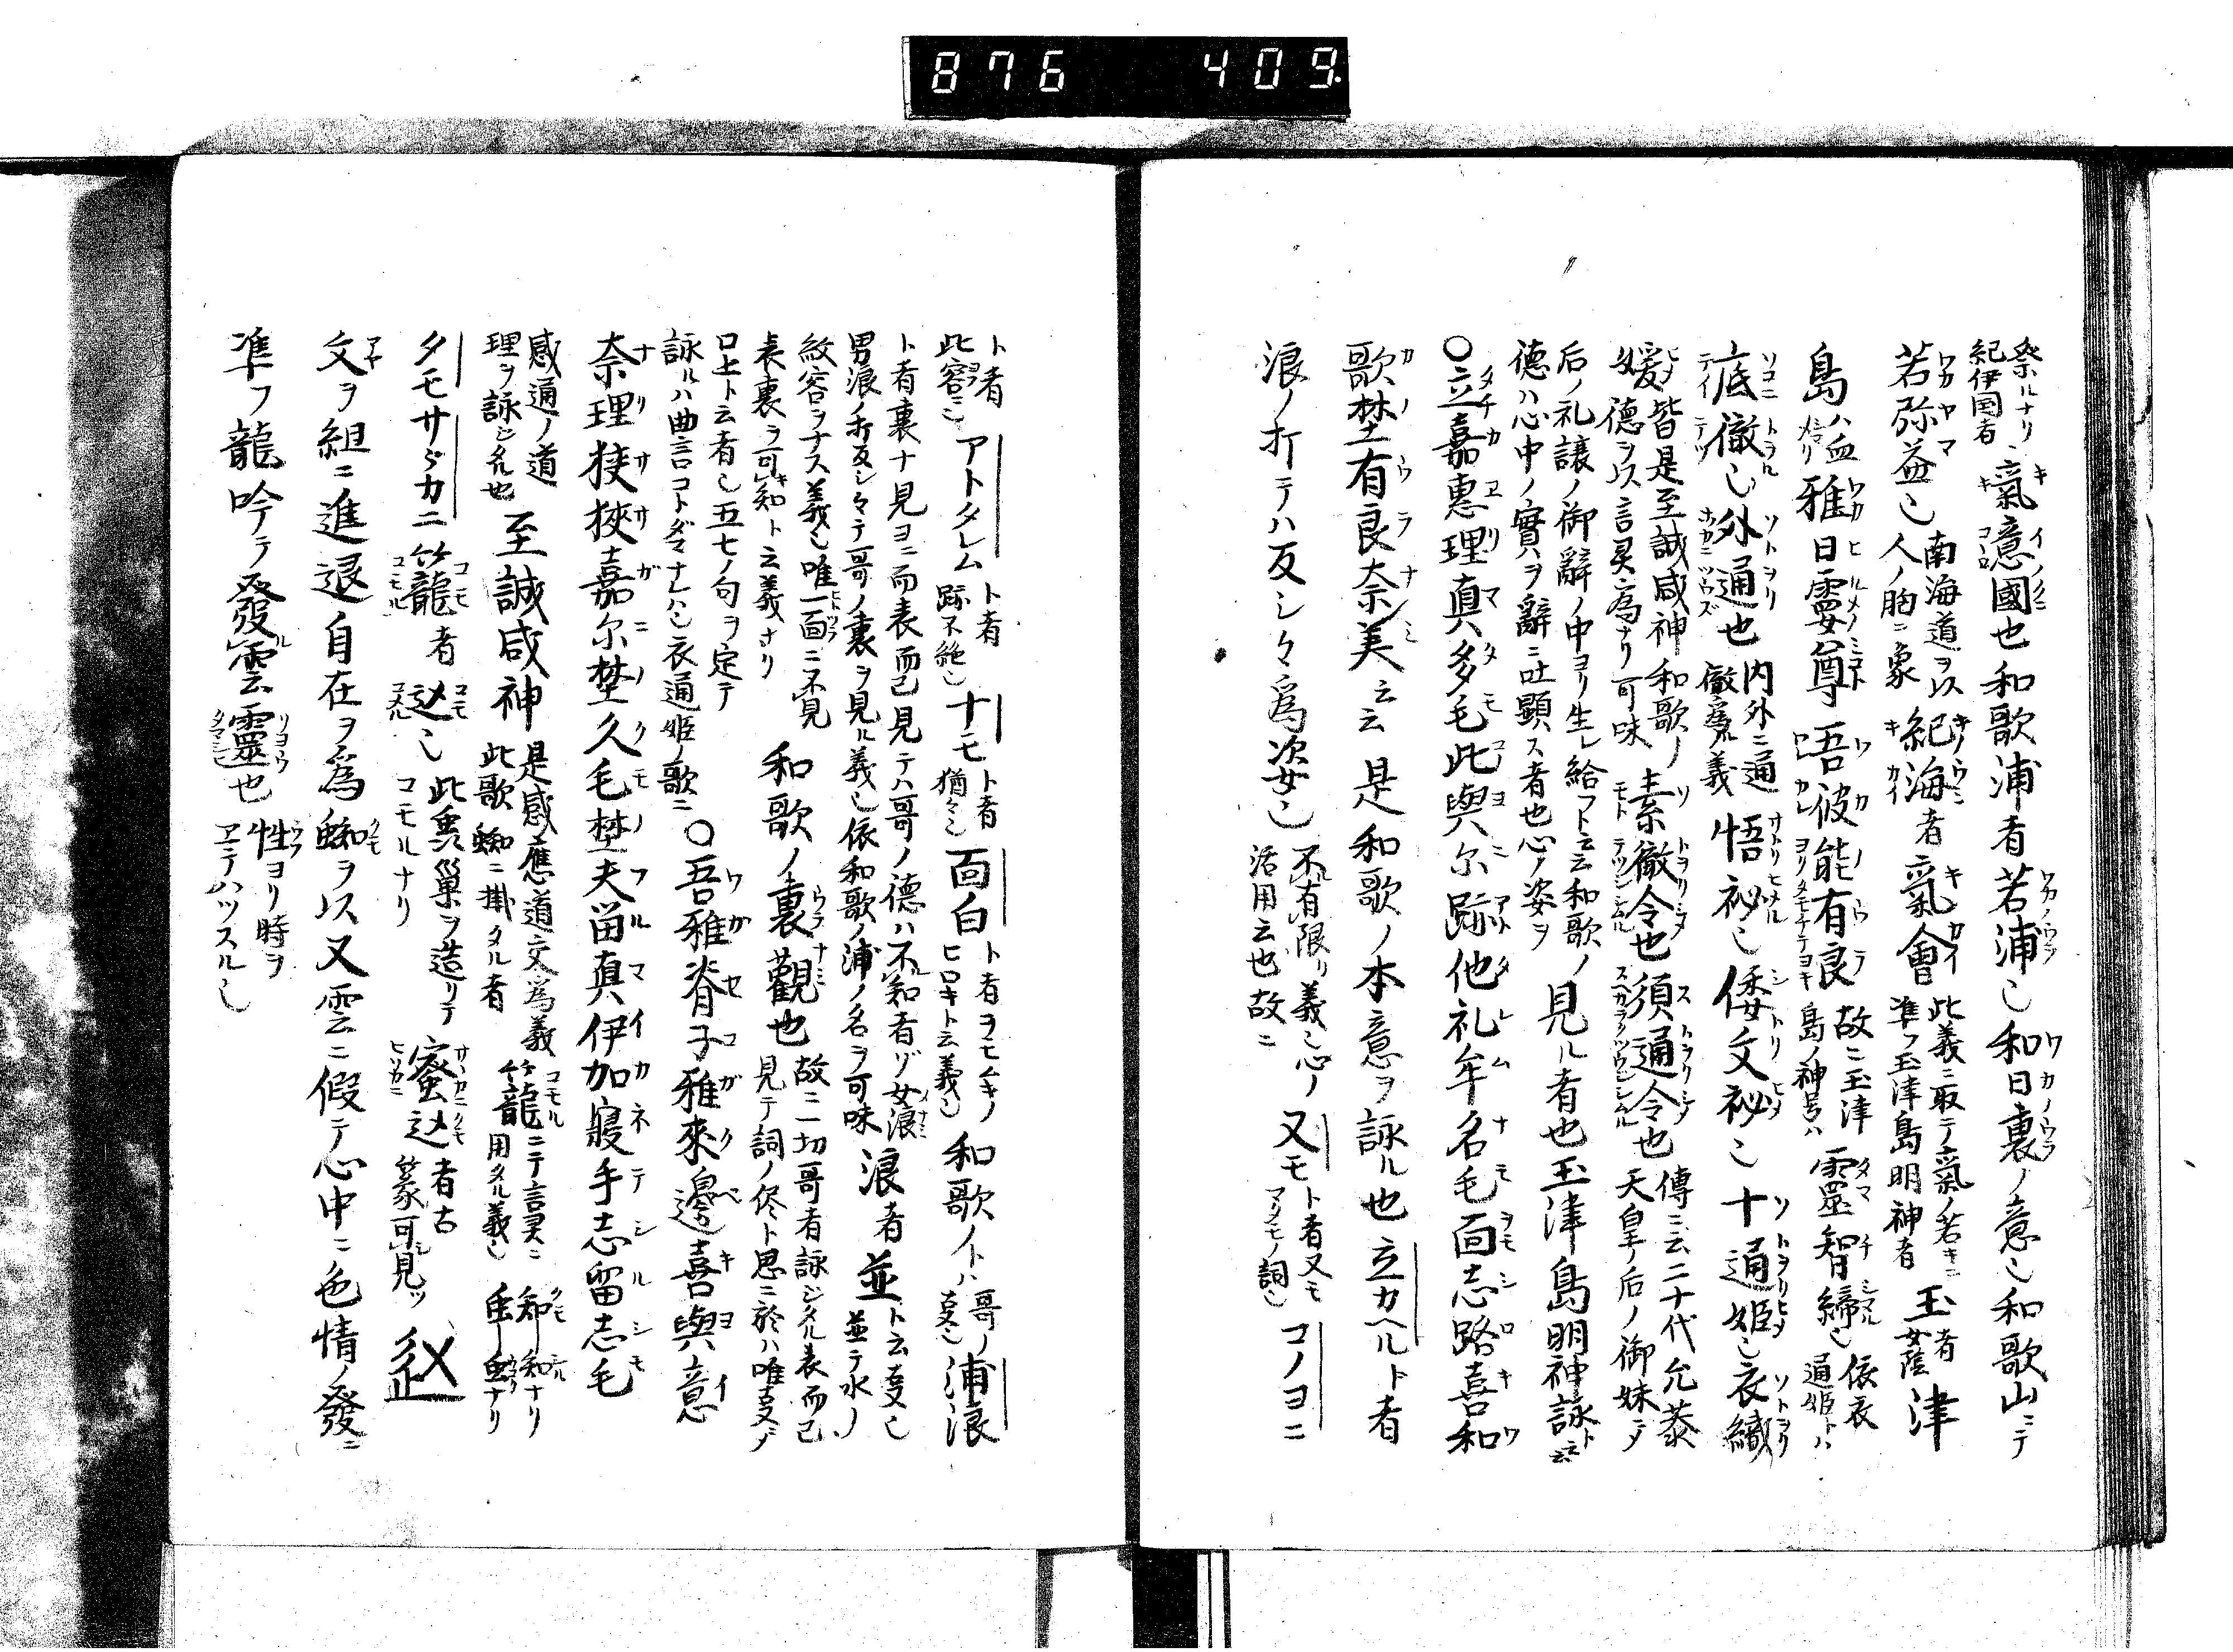 876 409.
祭ルナリ紀伊国者氣意國也和歌浦者若浦也和日裏ノ意也和歌山ニテ
若弥益也南海道ヲ以人ノ胸ニ象紀海者氣會此義ニ取テ氣ノ若キニ準フ玉津島明神者玉者女蔭津
島ハ血メクリ雅日霊尊吾彼能有良故ニ玉津島ノ神号ハ靈智締也依衣通姫トハ
底徹也外通也内外ニ通徹爲ルノ義悟祕也倭文祕也十通姫也衣織
媛皆是至誠咸神和歌ノ徳ヲ以言灵為ナリ可味素徹令也須通令也傳ニ云二十代允恭天皇ノ后ノ御妹ニテ
后ノ礼譲ノ御辭ノ中ヨリ生レ給フト云云和歌ノ徳ハ心中ノ實ヲ辭ニ吐顕ス者也心ノ姿ヲ見ル者也玉津島明神詠ト云云
〇立嘉惠理真多毛此與尓跡他礼牟名毛面志路喜和
歌埜有良奈美云云是和歌ノ本意ヲ詠ル也立カヘルト者
浪ノ折テハ反シ々々爲姿也不有限リ義也心ノ活用云也故ニ又モト者又モマタモノ詞也コノヨニ
ト者此容ニ也アトタレムト者跡不絶也ナモト者猶々也面白ト者ヲモムキノヒロキト云義也和歌ノトハ哥ノ支也浦浪
ト者裏ナ見ヨニ而表而已見テハ哥ノ徳ハ不知者ゾ女浪男浪ノ折反シ々々テ哥ノ裏ヲ見ル義也依和歌ノ浦ノ名ヲ可味浪者並ト云支也並テ水ノ
紋容ヲナス義也唯一面ニ不見表裏ヲ可知ト云義ナリ和歌ノ裏觀也故ニ一切哥者詠ジタル表而已見テ詞ノ侭ト思ニ於ハ唯支ゾ
口上ト云者也五七ノ句ヲ定テ詠ルハ曲言コトダマナレハ也衣通姫ノ歌ニ〇吾雅脊子雅來邊喜與意
奈理狭狭嘉尓埜久毛埜夫留真伊加寢手志留志毛
感通ノ道理ヲ詠ジタル也至誠咸神是感應道交為義此歌蜘ニ掛タル者竹龍ニテ言灵ニ用タル義也
タモサヾカニ竹龍者也コモルナリ此虫巣ヲ造リテ蜜者古篆可見ッ
文ヲ組ニ進退自在ヲ為蜘ヲ以又雲ニ假テ心中ニ色情ノ發ニ
準フ龍吟テ發雲靈也性ヨリ時ヲヱテハツスル也